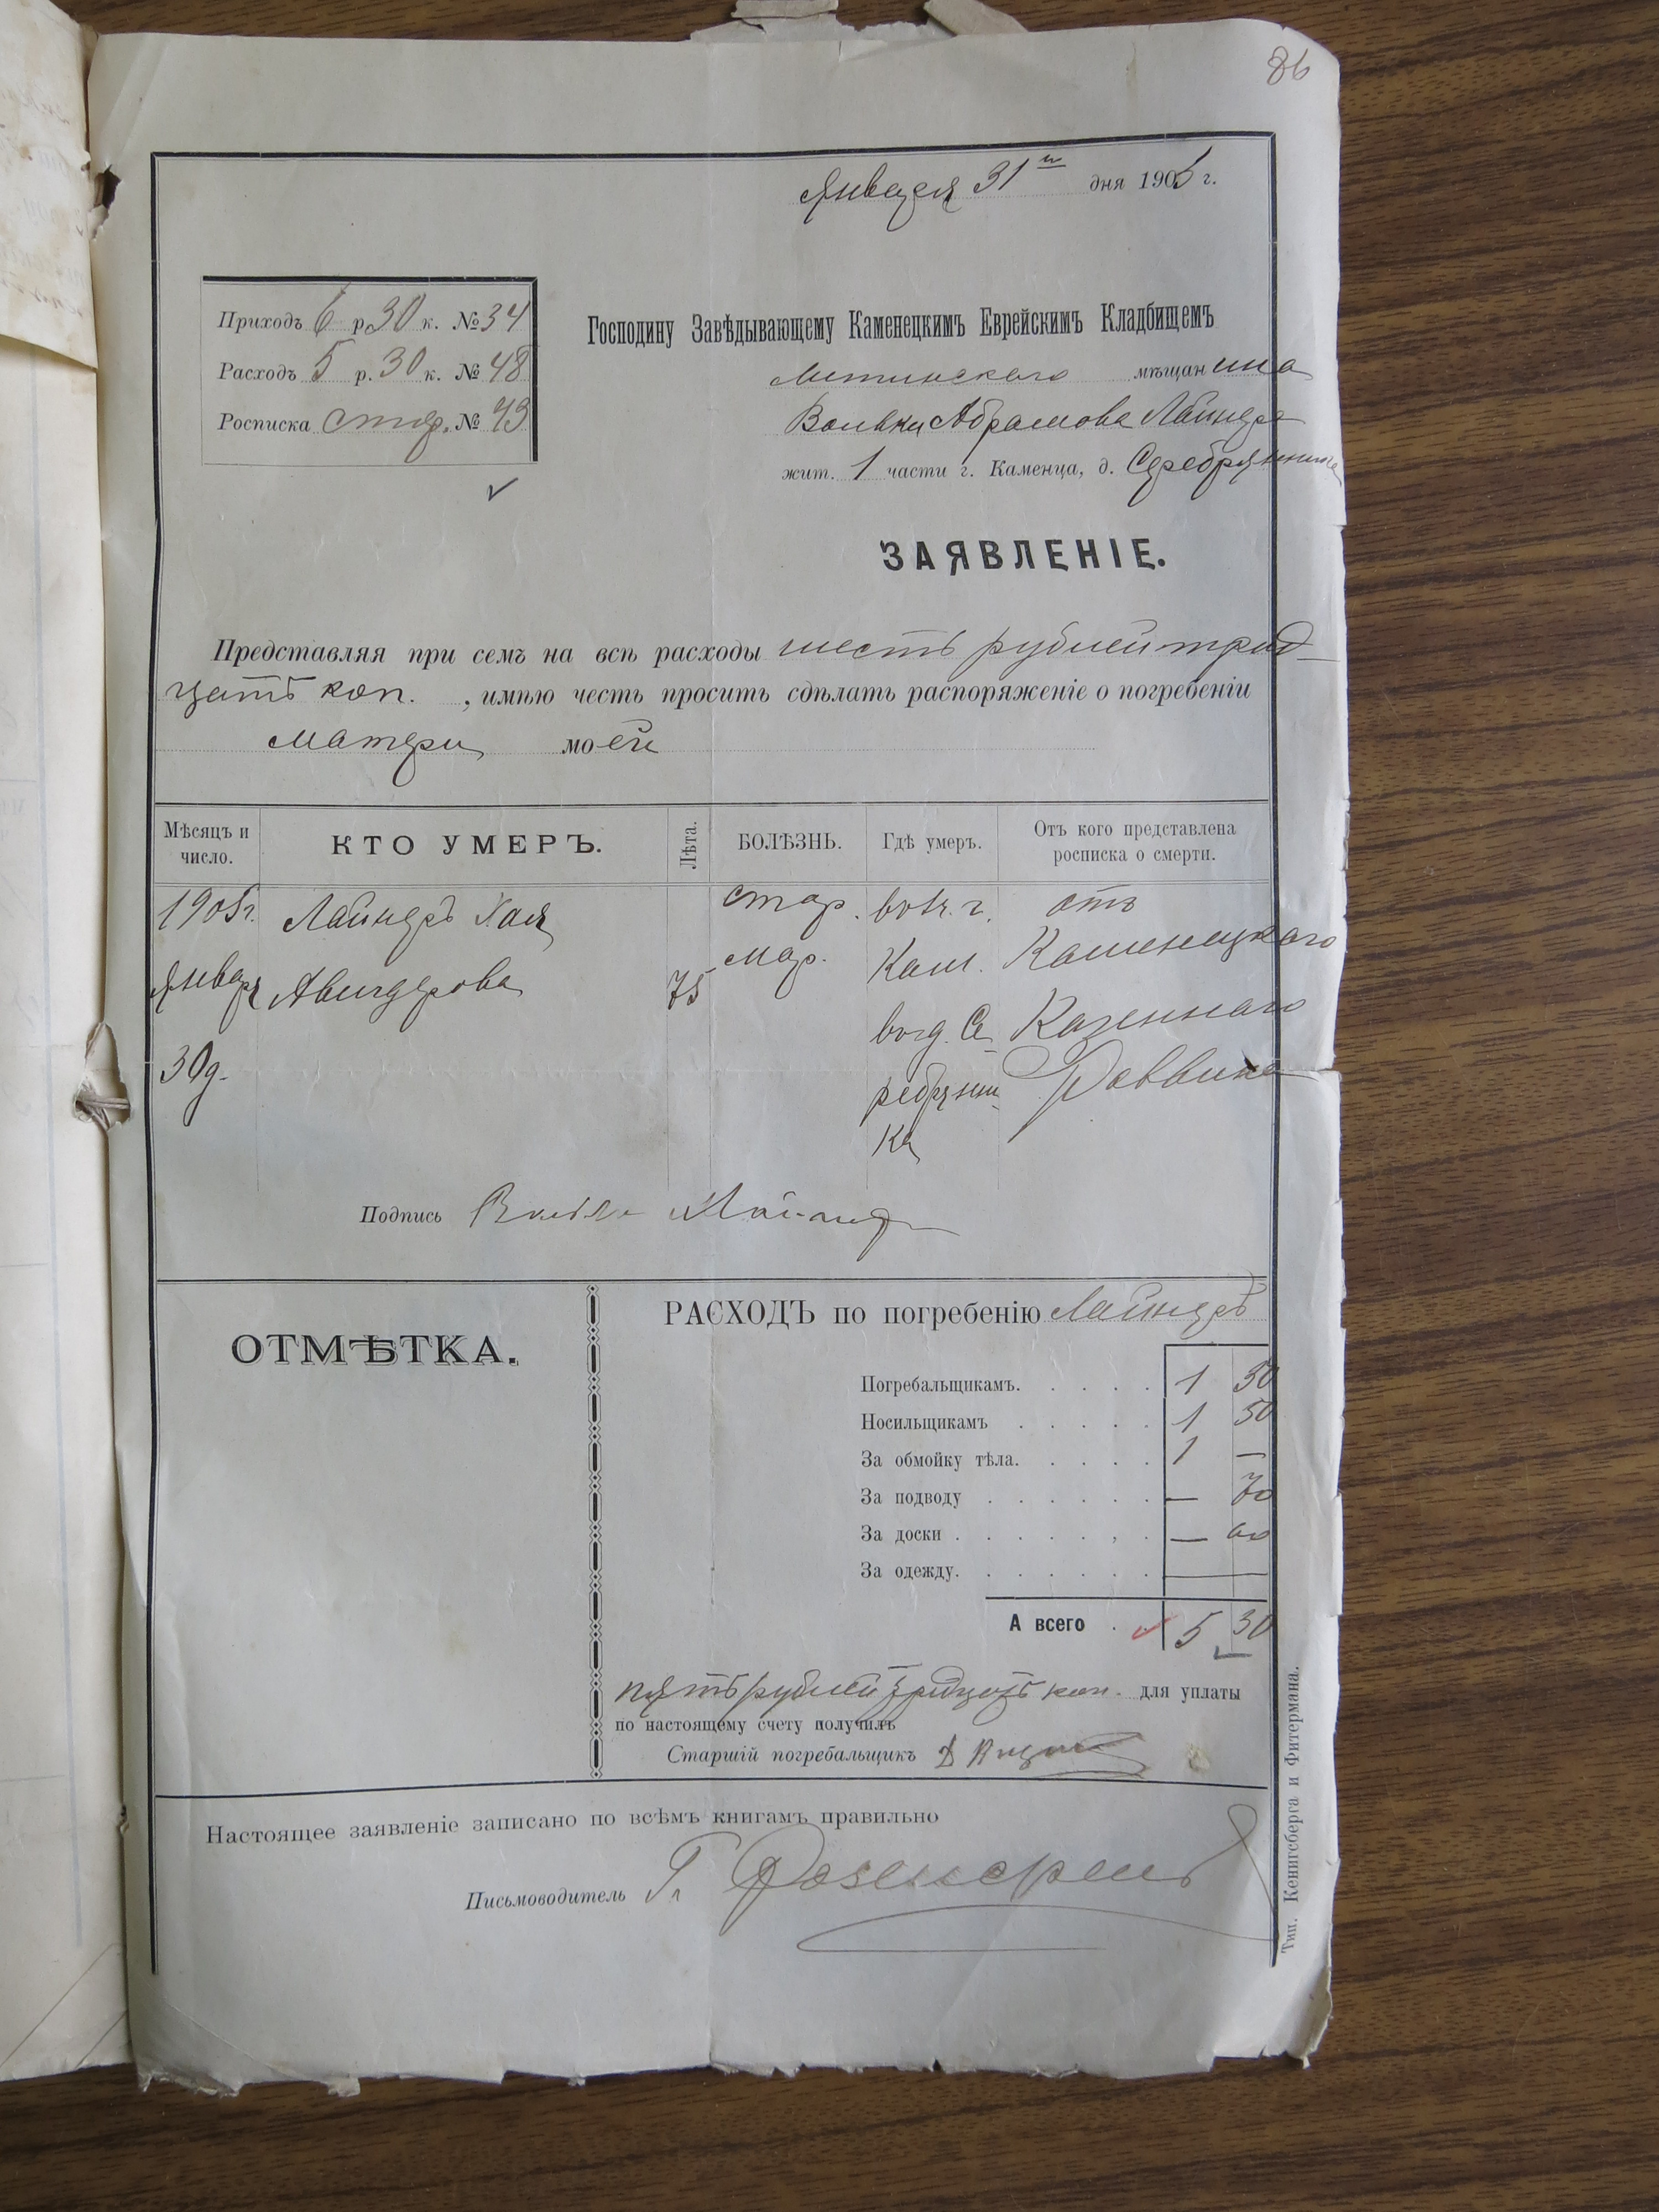 86
Января 31го дня 1905 г.
Приходъ 6 р. 30 к. № 34
Расходъ 5 р. 30 к. № 48
Росписка стар. № 43
Господину Завѣдывающему Каменецкимъ Еврейскимъ Кладбищемъ
Летинскаго мѣщанина
Вольки Абрамова Лайнера
жит. 1 части г. Каменца, д. Серебрянника
ЗАЯВЛЕНІЕ.
Представляя при семъ на всѣ расходы шесть рублей трид-
цать коп. , имѣю честь просить сдѣлать распоряженіе о погребеніи
матери моей
Мѣсяцъ и число. КТО УМЕРЪ. Лѣта. БОЛѢЗНЬ. Гдѣ умеръ. Отъ кого представлена росписка о смерти.
1905г. Лайнеръ Хая стар. во 1ч. г. отъ
Январь Авигдорова 75 мар. Кам. Каменецкаго
30 д. во д. Се- Казеннаго
ребрянни- Раввина
ка
Подпись Лайнер
ОТМѢТКА.
РАСХОДЪ по погребенію Лайнеръ
Погребальщикамъ. 1 50
Носильщикамъ 1 50
За обмойку тѣла. 1 —
За подводу — 70
За доски — 60
За одежду. —
А всего 5 30
пять рублей тридцать коп. для уплаты
по настоящему счету получилъ
Старшій погребальщикъ
Настоящее заявленіе записано по всѣмъ книгамъ правильно
Письмоводитель Г.
Тип. Кенигсберга и Фитермана.